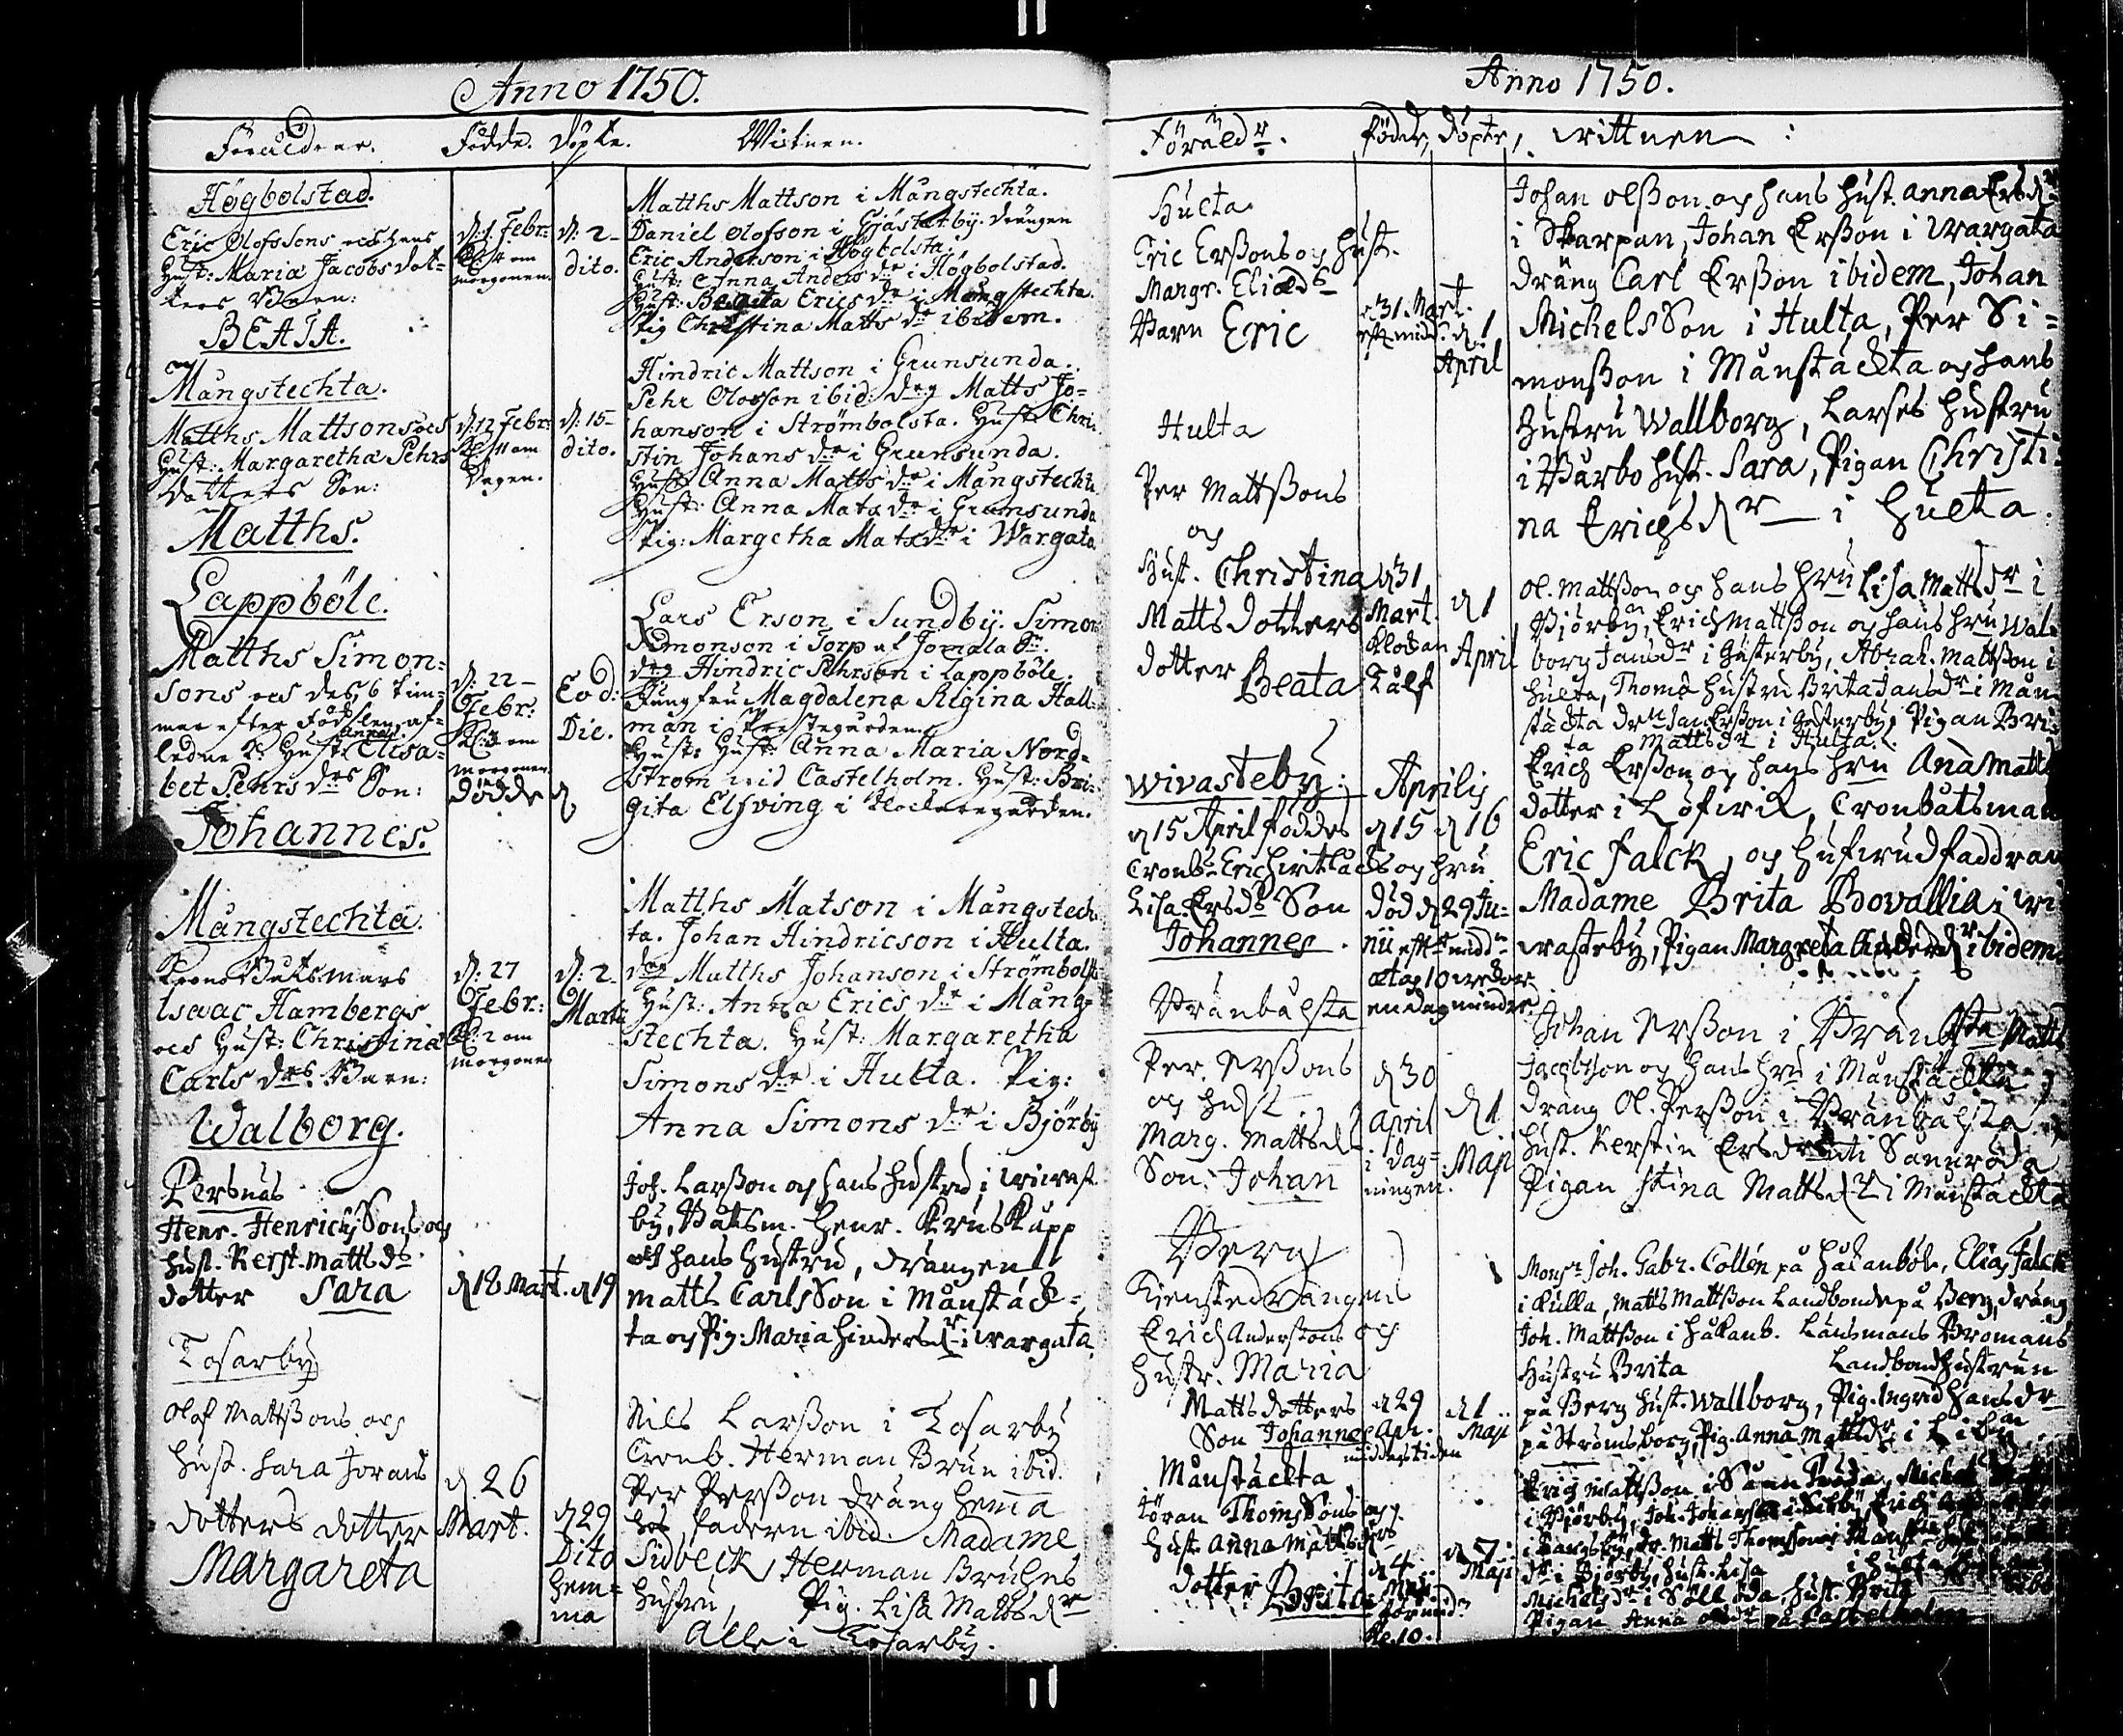 Anno 1750.
Föräldrar. Födde. Döpte. Witnen.
Högbolstad.
Eric Olofssons och hans
Hust: Maria Jacobs dot-
ters Barn:
BEATA.
d: 1 Febr:
Kl: 4 om
morgonen.
d: 2
dito.
Matths Mattson i Mångstechta.
Daniel Olofsson i Gjästerby. drängen
Eric Anderson i Högbolsta.
Hust: Anna Anders dr i Högbolstad.
Hust: Beata Erics dr i Mångstechta.
Pig Christina Matts dr ibidem.
Mångstechta.
Matths Mattsons och
Hust: Margaretha Pehrs
dotters Son:
Matths.
d: 12 Febr:
Kl: 11 om
Dagen.
d: 15
dito.
Hindric Mattson i Grunsunda.
Pehr Olofson ibid: dreg Matts Jo-
hanson i Strömbolsta. Hust Chri-
stin Johans dr i Grunsunda.
Hust Anna Matts dr i Mångstechta.
Hust: Anna Mats dr i Grunsunda
Pig: Margetha Mats dr i Wargata
Lappböle.
Matths Simon-
sons och des 6 tim-
mar efter Födslen af-
ledne K: Hust: Anna Elisa-
bet Pehrs drs Son:
Johannes.
d: 22
Febr:
Kl: 3 om
morgonen.
Dödde d
Eod:
Die.
Lars Erson i Sundby. Simon
Simonson i Torp af Jomala Sn.
dreg Hindric Pehrson i Lappböle.
Jungfru Magdalena Regina Hall-
man i Prestegården.
Hust: Anna Maria Nord-
strom wid Castelholm. Hust: Bri-
gita Elfving i Klockaregården.
Mångstechta.
Krono Båtsmans
Isaac Hambergs
och Hust: Christina
Carls drs Barn:
Walborg.
d: 27
Febr:
Kl: 2 om
morgonen
d: 2
Martii
Matths Matson i Mångstech-
ta. Johan Hindricson i Hulta.
dreg Matths Johanson i Strömbolst
Hust: Anna Erics dr i Mång-
stechta. Hust: Margaretha
Simons dr i Hulta. Pig:
Anna Simons dr i Bjørby
Persnäs
Henr. Henrichs Sons och
hust. Kerst. matts ds
dotter Sara
d 18 Mart. d 19
Joh. Larßon och hans hustru i wiwast
by, Båtsm. Henr. Kruskupp
och hans hustru, drängen
matts Carls Son i Månstäck-
ta och Pig: Maria hinders dr i wargata.
Tosarby
Olof Mattßons och
hust. Sara Jorans
dotters dotter
Margareta
d 26
Mart.
d 29
Dito
hem-
ma
Nils Larßon i Tosarby
Cronb. Herman Brun ibid.
Per Perßon dräng hema
hos fadern ibid. Madame
Sidbeck, Herman Bruhns
hustru, Pig. Lisa Matts dr
Alle i Tosarby.
Anno 1750.
Föräldr. födde, döpte, wittnen:
Hulta
Eric Erßons och hust.
Margr. Eliæ ds
Barn Eric
d 31 Mart.
eft. midd.
d 1
April
Johan olßon och hans hust. anna Ers dr
i Skarpan, Johan Erßon i wargata
dräng Carl Erßon ibidem, Johan
Michels Son i Hulta, Per Si-
monßon i Månstäckta och hans
hustru Wallborg, Larses hustru
i Wärbo hust. Sara, Pigan Christi-
na Erichs dr i Hulta.
Hulta
Per Mattßons
och
hust. Christina
Matts dotters
dotter Beata
d 31
Mart.
klockan
tolf
d 1
April
Ol. Mattßon och hans hru Lisa Matts dr i
Bjørby, Erich Mattßon och hans hru Wal-
borg Jans dr i Gästerby, Abrah. Mattßon i
hulta, Thoms hustru Brita Jans dr i Mån-
stäckta dr Jan Erßon i Gästerby, Pigan Bri-
ta Matts dr i Hulta.
wiwasteby:
d 15 April föddes
Cronb. Erich och hru
Lisa Ers ds Son
Johannes.
Aprilis
d 15 d 16
död d 29 Ju-
nii eft. midd.
ætat 10 weckor
en dag mindre.
Erich Erßon och hans hru Anna Matts
dotter i Löfwik, Cronbåtsman
Eric Falck, och
Madame Brita Bovallia i wi-
wasteby, Pigan Margreta ibidem
Bränbolsta
Per Erßons
och hust
Marg. Matts ds
Son Johan
d 30
April
i dag-
ningen.
d 1
Maji
Johan Erßon i Matts
Jacobson och hans hru i Månstäckta,
dräng Ol. Perßon i Bränbolsta
hust. Kerstin Ers dr
Pigan Stina Matts dr i Månstäckta
Berg
Erich Anderssons och
hustr. Maria
Matts dotters
Son Johannes
d 29
Apr.
middagstiden
d 1
Maji
Monsr Joh. Gabr. Collén på Häkanböle, Elias Falck
i Kulla, Matts Mattßon Landbonde på Berg, dräng
Joh. Mattßon i Håkanb. Länsmans Bromans
hustru Brita Landbond hustrun
på Berg hust. Wallborg, Pig. Ingrid Hans dr
på Strömsborg, Pig. Anna Matts dr i
Månstäckta
Jöran Thoms Sons och
hust. anna Matts drs
dotter Brita
d 4
Maji
förmidd.
Kl. 10.
d 7
Maji
Erich Mattßon i
i Bjørby, Joh.
Matts Thomßon
dr i Bjørby, hust. Lisa i hulta
Michels dr i hust. Brita
Pigan Anna på Castelholm